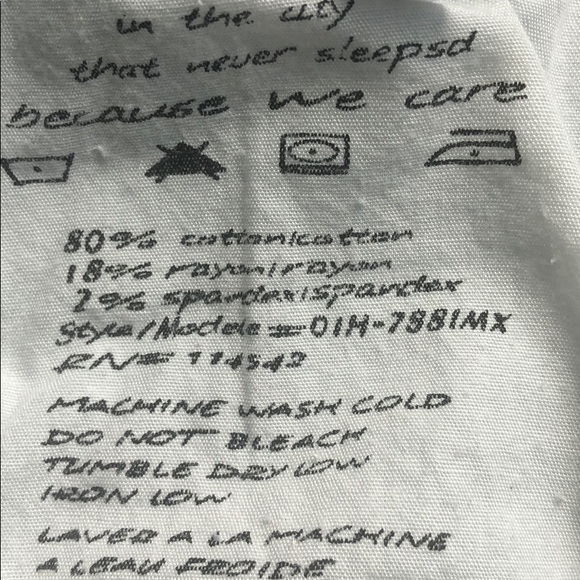 in the city
that never sleepsd
because we care
80% cotton/cotton
18% rayon/rayon
2% spandex/spandex
Style/Modele = 01H-7881MX
RN# 114542
MACHINE WASH COLD
DO NOT BLEACH
TUMBLE DRY LOW
IRON LOW
LAVER A LA MACHINE
A LEAU FROIDE